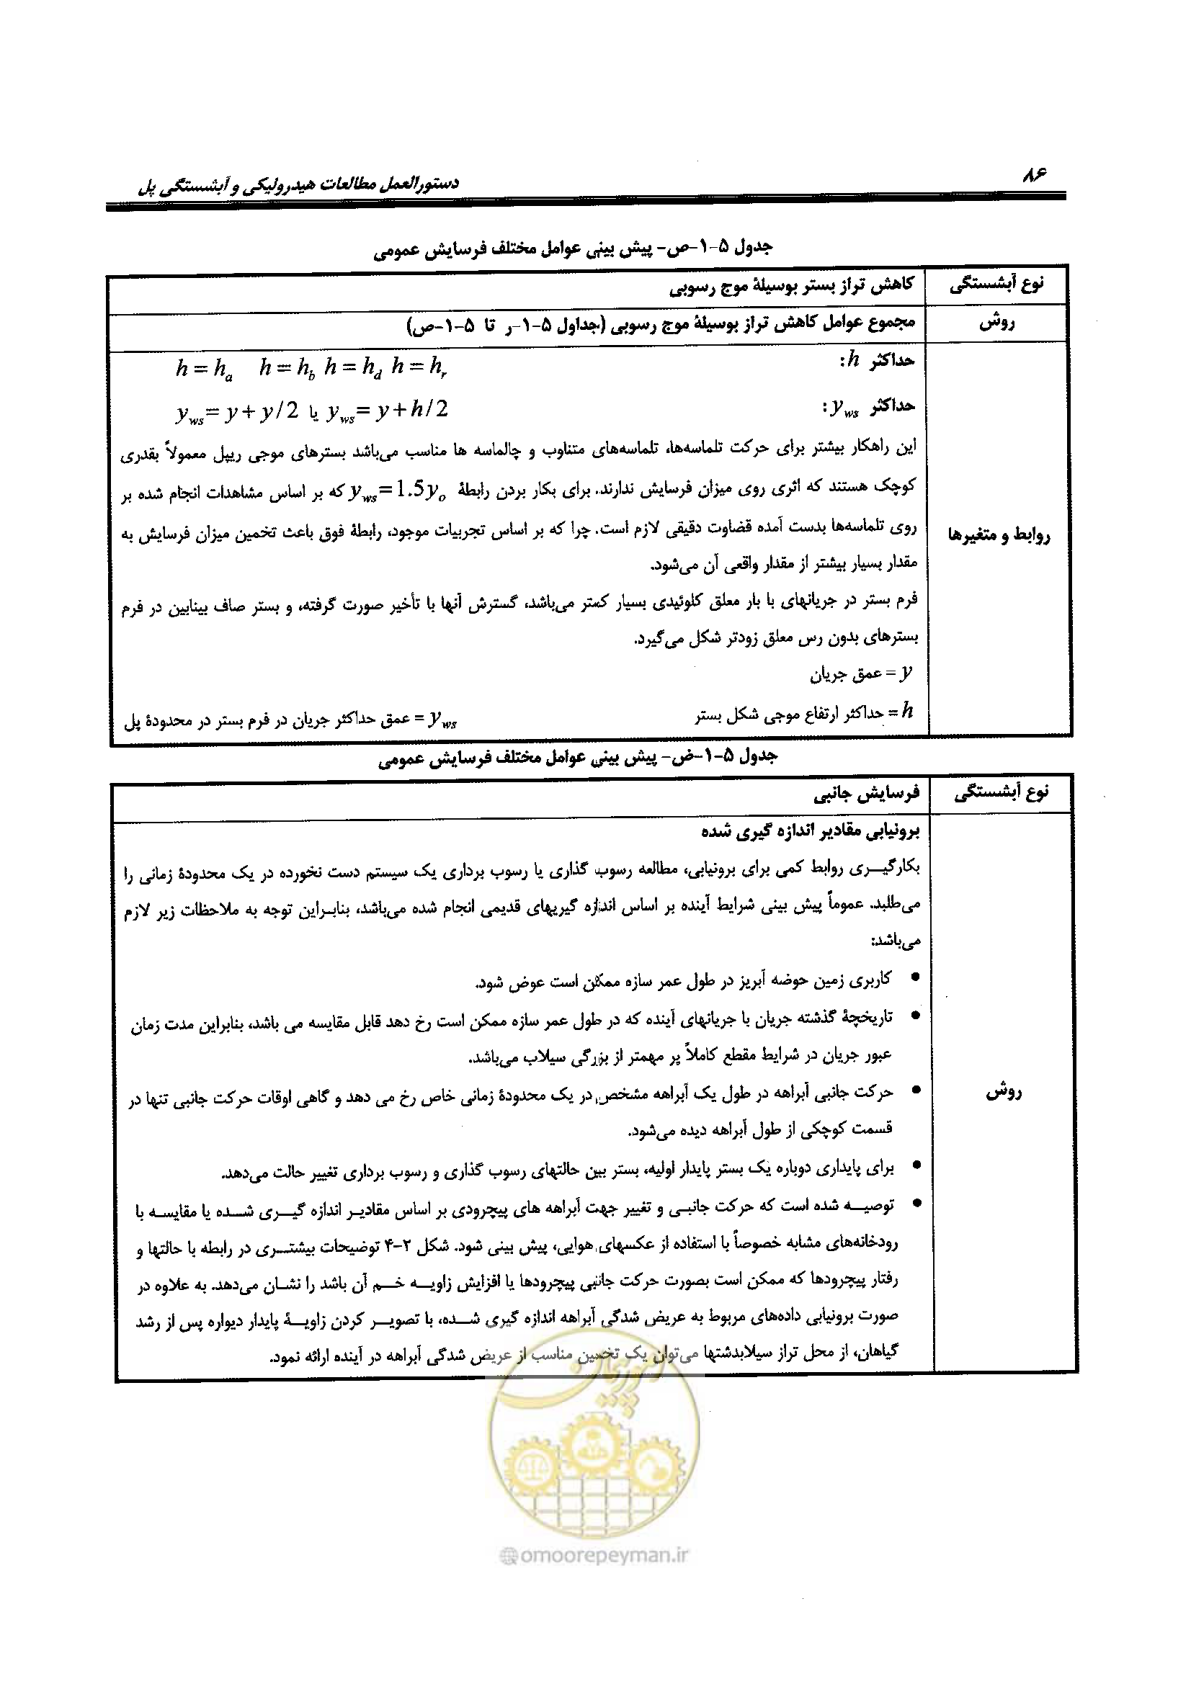 ۸۶
دستورالعمل مطالعات هیدرولیکی و آبشستگی پل
جدول ۵-۱-ص- پیش بینی عوامل مختلف فرسایش عمومی
نوع آبشستگی
کاهش تراز بستر بوسیلهٔ موج رسوبی
روش
مجموع عوامل کاهش تراز بوسیلهٔ موج رسوبی (جداول ۵-۱-ر تا ۵-۱-ص)
روابط و متغیرها
حداکثر h: h = h_a h = h_b h = h_d h = h_r
حداکثر y_ws: y_ws = y + h/2 یا y_ws = y + y/2
این راهکار بیشتر برای حرکت تلماسه‌ها، تلماسه‌های متناوب و چالماسه ها مناسب می‌باشد بسترهای موجی ریپل معمولاً بقدری
کوچک هستند که اثری روی میزان فرسایش ندارند. برای بکار بردن رابطهٔ y_ws = 1.5y_o که بر اساس مشاهدات انجام شده بر
روی تلماسه‌ها بدست آمده قضاوت دقیقی لازم است. چرا که بر اساس تجربیات موجود، رابطهٔ فوق باعث تخمین میزان فرسایش به
مقدار بسیار بیشتر از مقدار واقعی آن می‌شود.
فرم بستر در جریانهای با بار معلق کلوئیدی بسیار کمتر می‌باشد، گسترش آنها با تأخیر صورت گرفته، و بستر صاف بینابین در فرم
بسترهای بدون رس معلق زودتر شکل می‌گیرد.
y = عمق جریان
h = حداکثر ارتفاع موجی شکل بستر y_ws = عمق حداکثر جریان در فرم بستر در محدودهٔ پل
جدول ۵-۱-ض- پیش بینی عوامل مختلف فرسایش عمومی
نوع آبشستگی
فرسایش جانبی
روش
برونیابی مقادیر اندازه گیری شده
بکارگیـری روابط کمی برای برونیابی، مطالعه رسوب گذاری یا رسوب برداری یک سیستم دست نخورده در یک محدودهٔ زمانی را
می‌طلبد. عموماً پیش بینی شرایط آینده بر اساس اندازه گیریهای قدیمی انجام شده می‌باشد، بنابـراین توجه به ملاحظات زیر لازم
می‌باشد:
● کاربری زمین حوضه آبریز در طول عمر سازه ممکن است عوض شود.
● تاریخچهٔ گذشته جریان با جریانهای آینده که در طول عمر سازه ممکن است رخ دهد قابل مقایسه می باشد، بنابراین مدت زمان
عبور جریان در شرایط مقطع کاملاً پر مهمتر از بزرگی سیلاب می‌باشد.
● حرکت جانبی آبراهه در طول یک آبراهه مشخص، در یک محدودهٔ زمانی خاص رخ می دهد و گاهی اوقات حرکت جانبی تنها در
قسمت کوچکی از طول آبراهه دیده می‌شود.
● برای پایداری دوباره یک بستر پایدار اولیه، بستر بین حالتهای رسوب گذاری و رسوب برداری تغییر حالت می‌دهد.
● توصیـه شده است که حرکت جانبـی و تغییر جهت آبراهه های پیچرودی بر اساس مقادیـر اندازه گیـری شـده یا مقایسـه با
رودخانه‌های مشابه خصوصاً با استفاده از عکسهای هوایی، پیش بینی شود. شکل ۲-۴ توضیحات بیشتـری در رابطه با حالتها و
رفتار پیچرودها که ممکن است بصورت حرکت جانبی پیچرودها یا افزایش زاویـه خـم آن باشد را نشـان می‌دهد. به علاوه در
صورت برونیابی داده‌های مربوط به عریض شدگی آبراهه اندازه گیری شـده، با تصویـر کردن زاویـهٔ پایدار دیواره پس از رشد
گیاهان، از محل تراز سیلابدشتها می‌توان یک تخمین مناسب از عریض شدگی آبراهه در آینده ارائه نمود.
امور پیمان
@omoorepeyman.ir